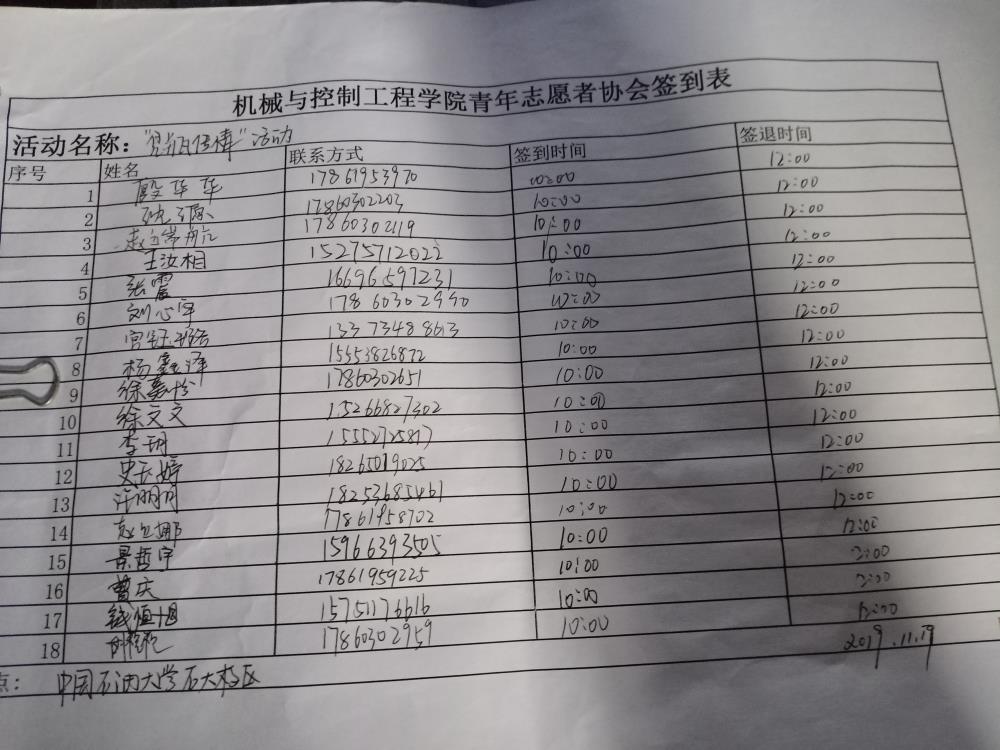 机械与控制工程学院青年志愿者协会签到表
活动名称： 活动
序号 姓名 联系方式 签到时间 签退时间
1 殷华车 17861953970 10:00 12:00
2 沈源 17860302203 10:00 12:00
3 17860302119 10:00 12:00
4 王汝相 15275712022 10:00 12:00
5 张震 16696597231 10:00 12:00
6 刘心宇 17860302990 10:00 12:00
7 宫钰 13373488613 10:00 12:00
8 杨鑫泽 15553826822 10:00 12:00
9 徐嘉怡 17860302651 10:00 12:00
10 徐文文 15266827302 10:00 12:00
11 李玥 15552725817 10:00 12:00
12 史天婷 18265019025 10:00 12:00
13 许明月 18253685461 10:00 12:00
14 17861958702 10:00 12:00
15 景哲宇 15966393505 10:00 12:00
16 曹庆 17861959225 10:00
17 钱恒旭 15751176616 10:00
18 17860302959 10:00 12:00
2019.11.19
点： 中国石油大学石大校区